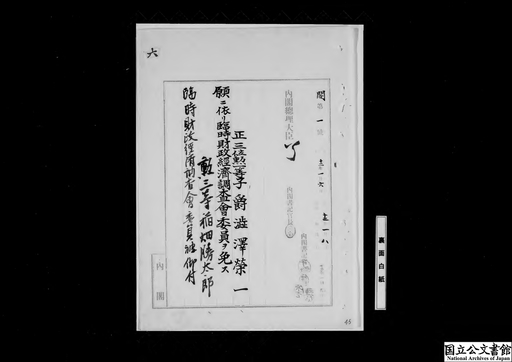 六
閣第一號
内閣總理大臣
内閣書記官長
正三位勲一等子爵澁澤榮一
願ニ依リ臨時財政經濟調査會委員ヲ免ス
勲三等稲畑勝太郎
臨時財政經濟調査會委員被仰付
内閣
裏面白紙
45
国立公文書館
National Archives of Japan